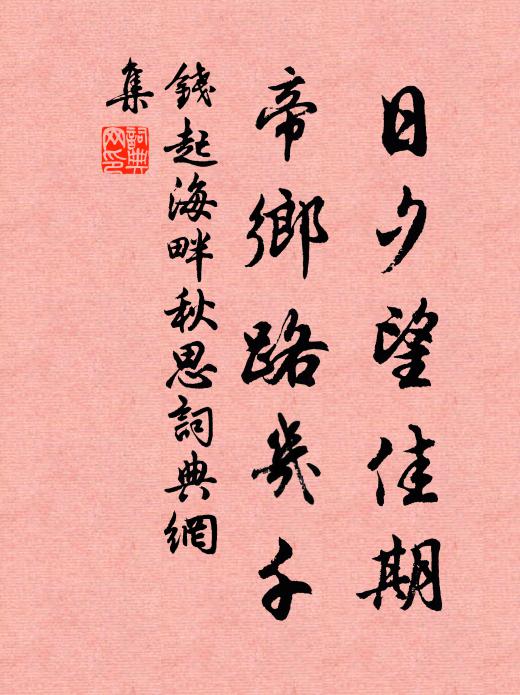 日夕望佳期
帝鄉路幾千
錢起海畔秋思詞典網
集
詞典
网印